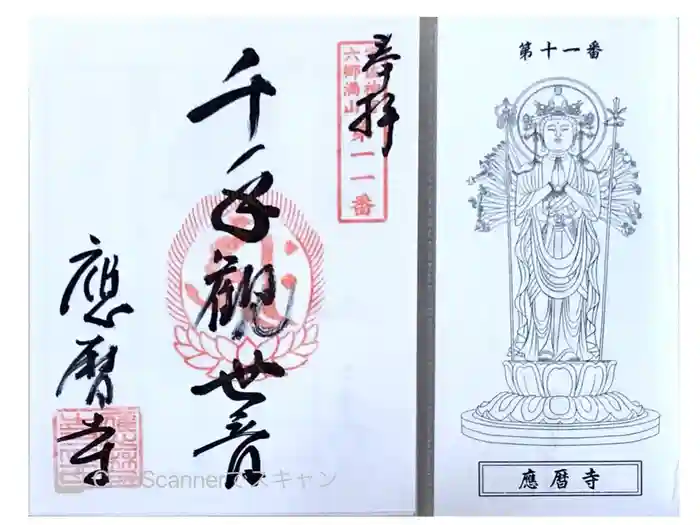 奉拝
六郷満山
第一一番
千手觀世音
應暦寺
Scannerでスキャン
第十一番
應暦寺